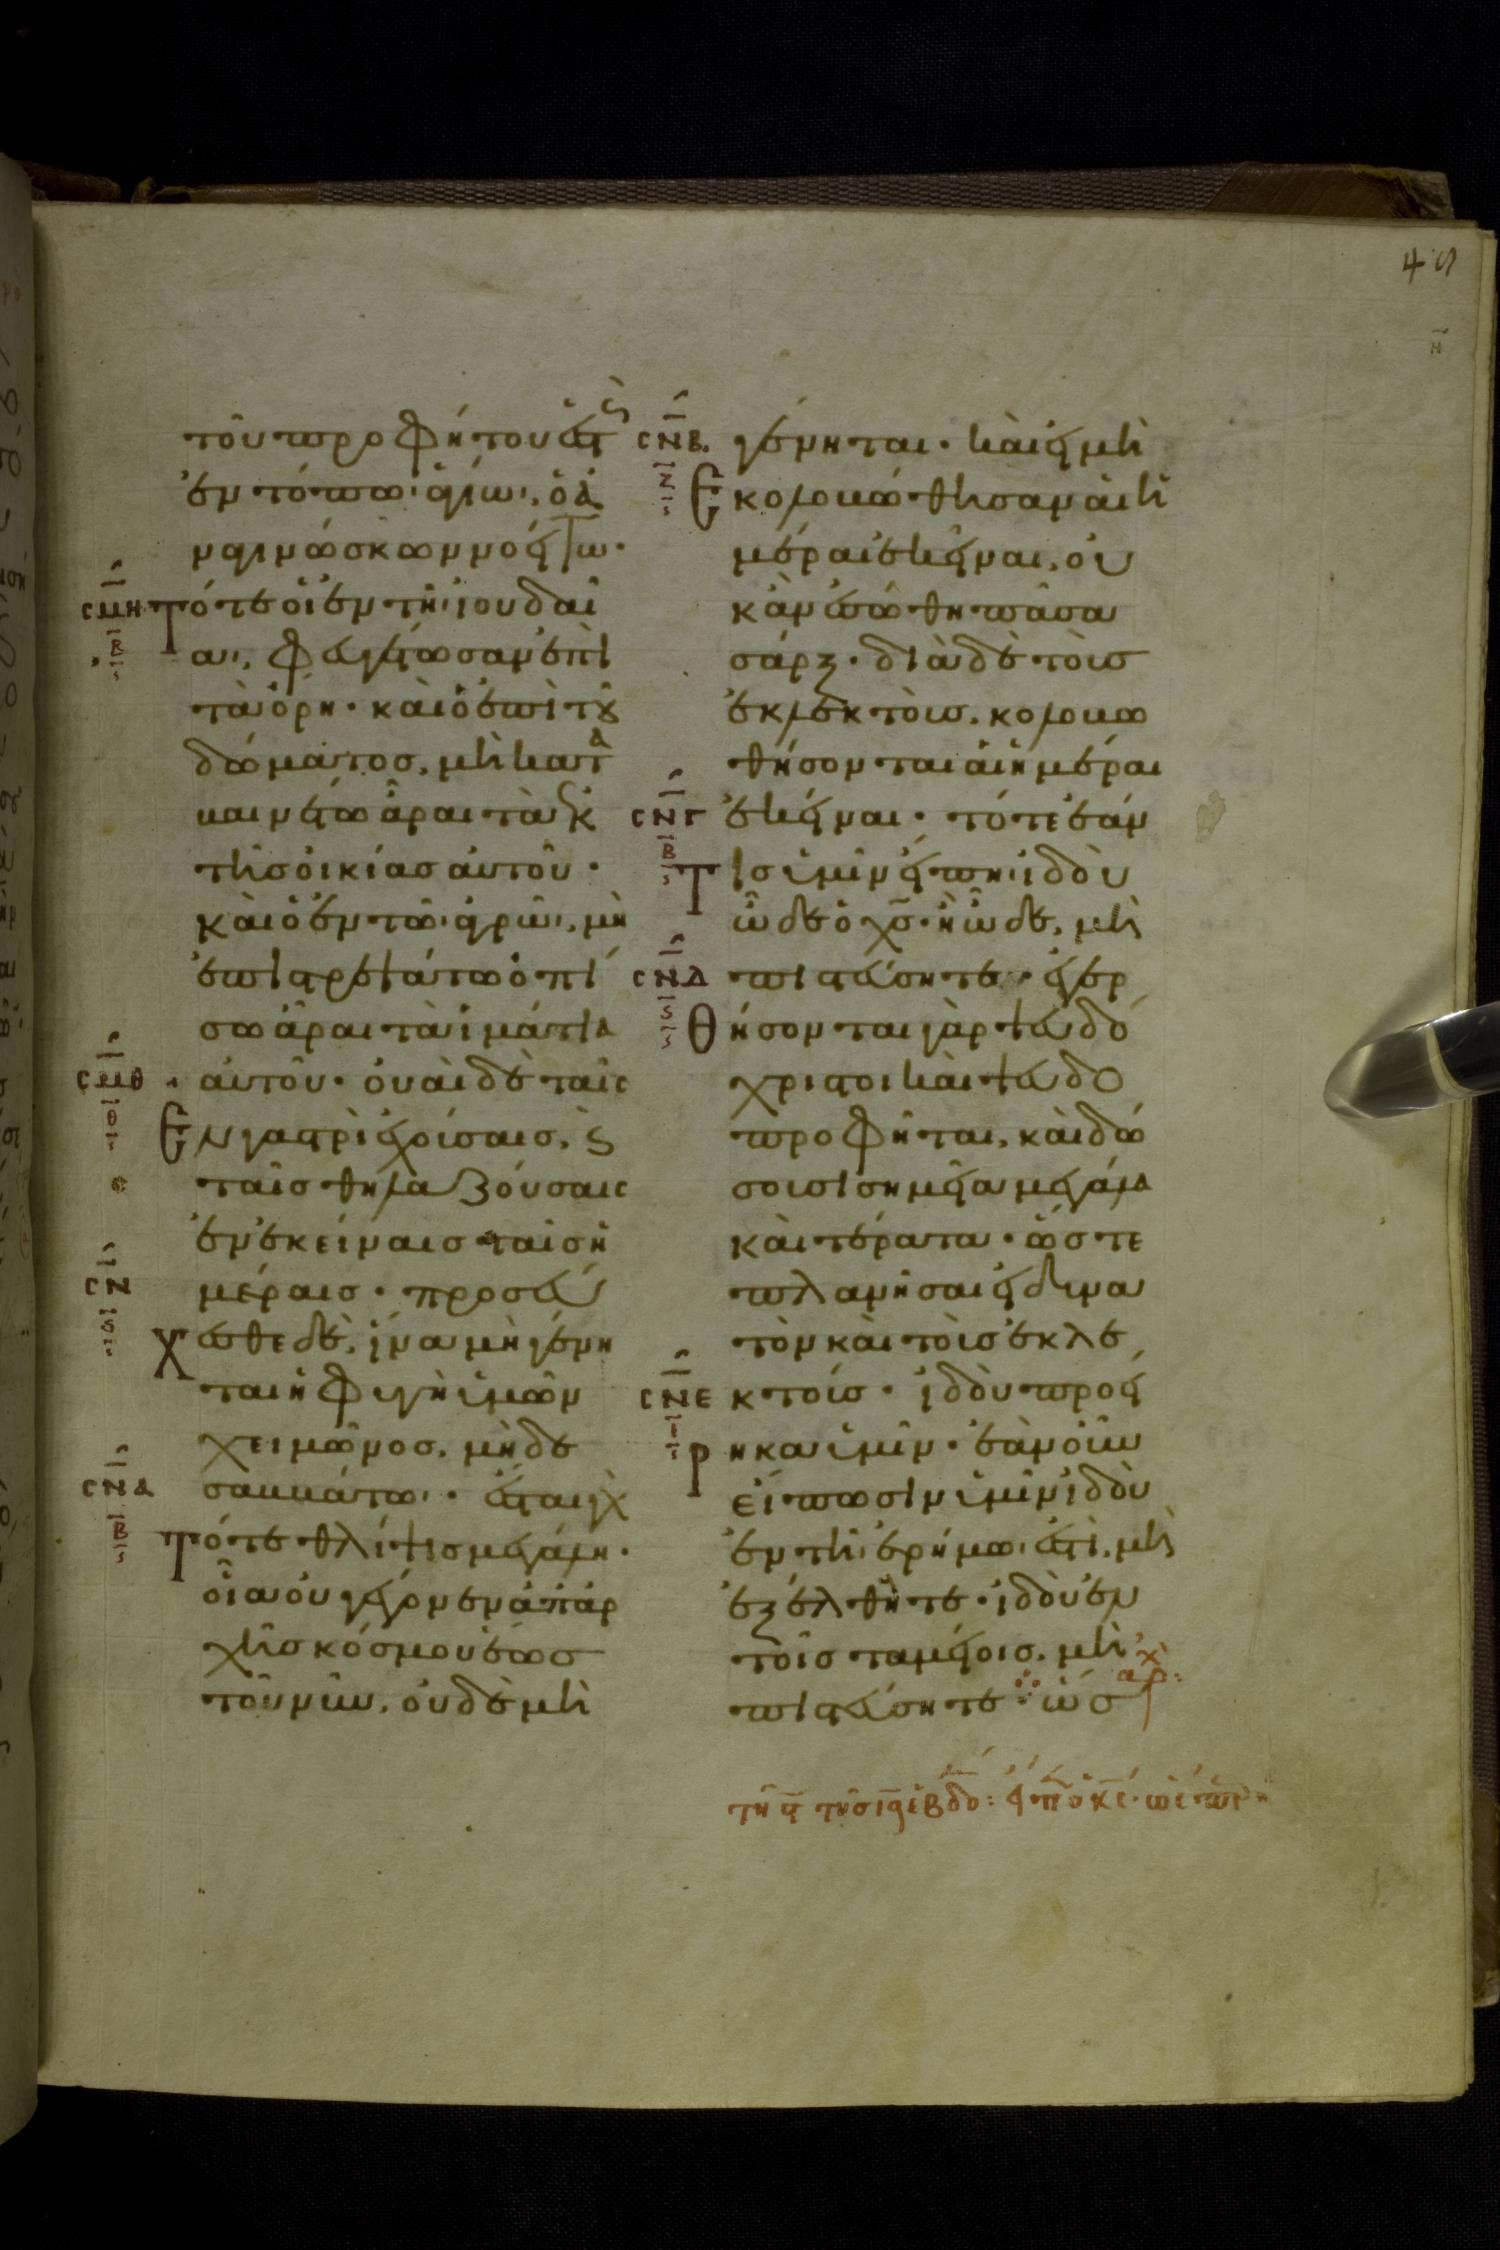 τοῦ προφήτου ἑστὸς
ἐν τόπω ἁγίω, ὁ ἀ
ναγινώσκων νοείτω·
Τότε οἱ ἐν τῆ ἰουδαί
α, φευγέτωσαν ἐπὶ
τὰ ὄρη· καὶ ὁ ἐπὶ τοῦ
δώματος, μὴ κατα
βαινέτω ἆραι τὰ ἐκ
τῆς οἰκίας αὐτοῦ·
καὶ ὁ ἐν τῶ ἀγρῶ, μὴ
ἐπιστρεψάτω ὀπί
σω ἆραι τὰ ἱμάτια
αὐτοῦ· οὐαὶ δὲ ταῖς
Ἐν γαστρὶ ἐχούσαις, καὶ
ταῖς θηλαζούσαις
ἐν ἐκείναις ταῖς ἡ
μέραις· προσεύ
Χεσθε δὲ, ἵνα μὴ γένη
ται ἡ φυγὴ ὑμῶν
χειμῶνος, μηδὲ
σαββάτω· ἔσται γὰρ
Τότε θλίψις μεγάλη·
οἵα οὐ γέγονεν ἀπ' ἀρ
χῆς κόσμου ἕως
τοῦ νῦν, οὐδὲ μὴ
γένηται· καὶ εἰ μὴ
Ἐκολοβώθησαν αἱ ἡ
μέραι ἐκεῖναι, οὐ
κ ἂν ἐσώθη πᾶσα
σάρξ· διὰ δὲ τοὺς
ἐκλεκτοὺς, κολοβω
θήσονται αἱ ἡμέραι
ἐκεῖναι· τότε ἐάν
Τις ὑμῖν εἴπη ἰδοὺ
ὧδε ὁ χς· ἢ ὧδε, μὴ
πιστεύσητε· ἐγερ
Θήσονται γὰρ ψευδό
χριστοι καὶ ψευδο
προφῆται, καὶ δώ
σουσι σημεῖα μεγάλα
καὶ τέρατα· ὥστε
πλανῆσαι εἰ δυνα
τὸν καὶ τοὺς ἐκλε
κτούς· ἰδοὺ προεί
Ρηκα ὑμῖν· ἐὰν οὖν
εἴπωσιν ὑμῖν ἰδοὺ
ἐν τῆ ἐρήμω ἐστὶ, μὴ
ἐξέλθητε· ἰδοὺ ἐν
τοῖς ταμείοις, μὴ
πιστεύσητε· ὥς
ἀρχ
σμη
β
σμθ
θ
σν
ς
σνα
β
σνβ
ζ
σνγ
β
σνδ
ς
σνε
ι